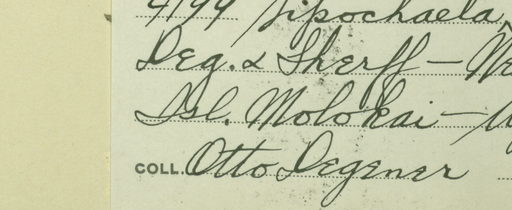 4199 Lipochaeta
Deg. & Sherff -
Isl. Molokai -
COLL. Otto Degener